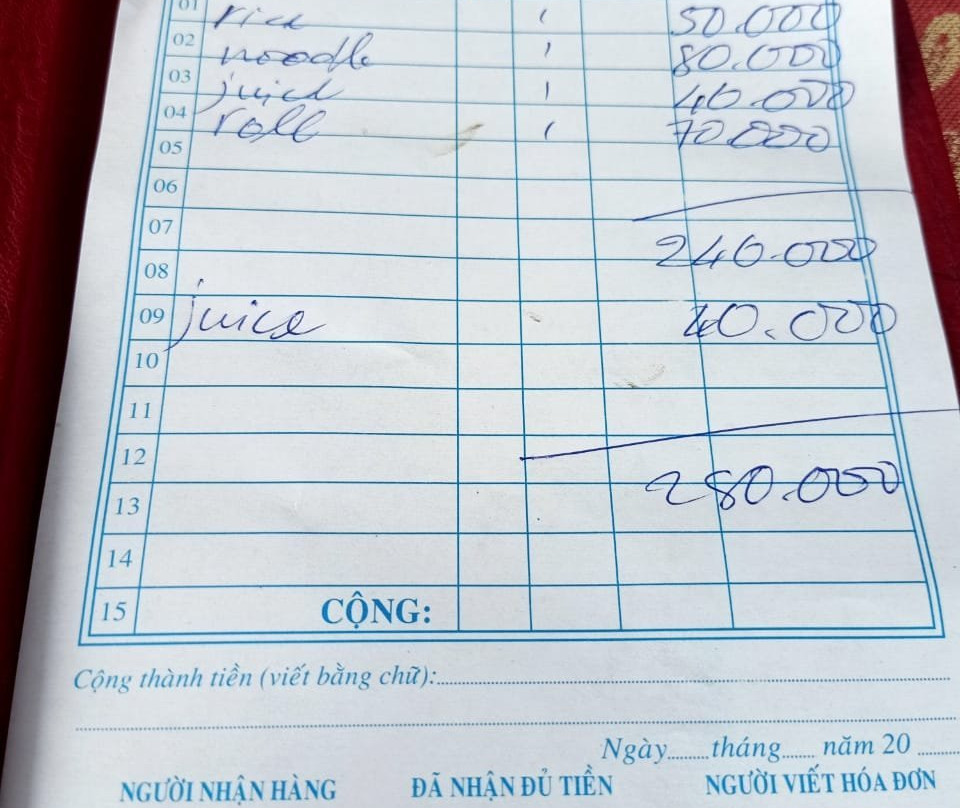 01 rice 1 50.000
02 noodle 1 80.000
03 juice 1 40.000
04 roll 1 70.000
05
06
07 240.000
08
09 juice 40.000
10
11
12
13 280.000
14
15 CỘNG:
Cộng thành tiền (viết bằng chữ):
Ngày tháng năm 20
NGƯỜI NHẬN HÀNG ĐÃ NHẬN ĐỦ TIỀN NGƯỜI VIẾT HÓA ĐƠN